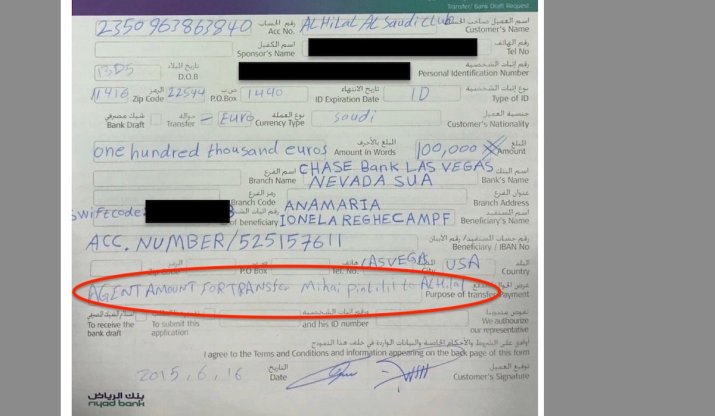 Transfer/ Bank Draft Request
23509638638​40 رقم الحساب Acc No. ALHiLaL AL Saudi cluB اسم العميل صاحب الحساب Customer's Name
اسم الكفيل Sponsor's Name رقم الهاتف Tel No
1305 تاريخ الميلاد D.O.B رقم إثبات الشخصية Personal Identification Number
11416 الرمز Zip Code 22544 ص.ب P.O.Box 1440 تاريخ الانتهاء ID Expiration Date ID نوع إثبات الشخصية Type of ID
شيك مصرفي Bank Draft حوالة Transfer – Euro نوع العملة Currency Type Saudi جنسية العميل Customer's Nationality
one hundred thousand euros المبلغ بالأحرف Amount in Words 100,000 المبلغ Amount
اسم الفرع Branch Name CHASE Bank LAS VEGAS NEVADA SUA اسم البنك Bank's Name
رمز الفرع Branch Code عنوان الفرع Branch Address
swiftcode: of beneficiary ANAMARIA IONELA REGHECAMPF اسم المستفيد Beneficiary's Name
ACC. NUMBER/525157611 رقم حساب المستفيد/ رقم الآيبان Beneficiary / IBAN No
Zip Code P.O Box هاتف Tel. No. LASVEGAS City USA البلد Country
AGENT AMOUNT FOR TRANSFER Mihai pintilil to ALHilal Purpose of transfer Payment
To receive the bank draft To submit this application and his ID number نفوض مندوبنا We authourize our representative
أوافق على الشروط والأحكام الخاصة والبيانات الواردة في خلف هذا النموذج
I agree to the Terms and Conditions and information appearing on the back page of this form
2015,6,16 التاريخ Date توقيع العميل Customer's Signature
بنك الرياض
riyad bank